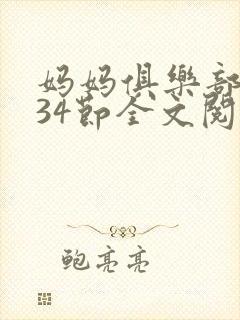 妈妈俱樂部
34節全文閱
鲍亮亮